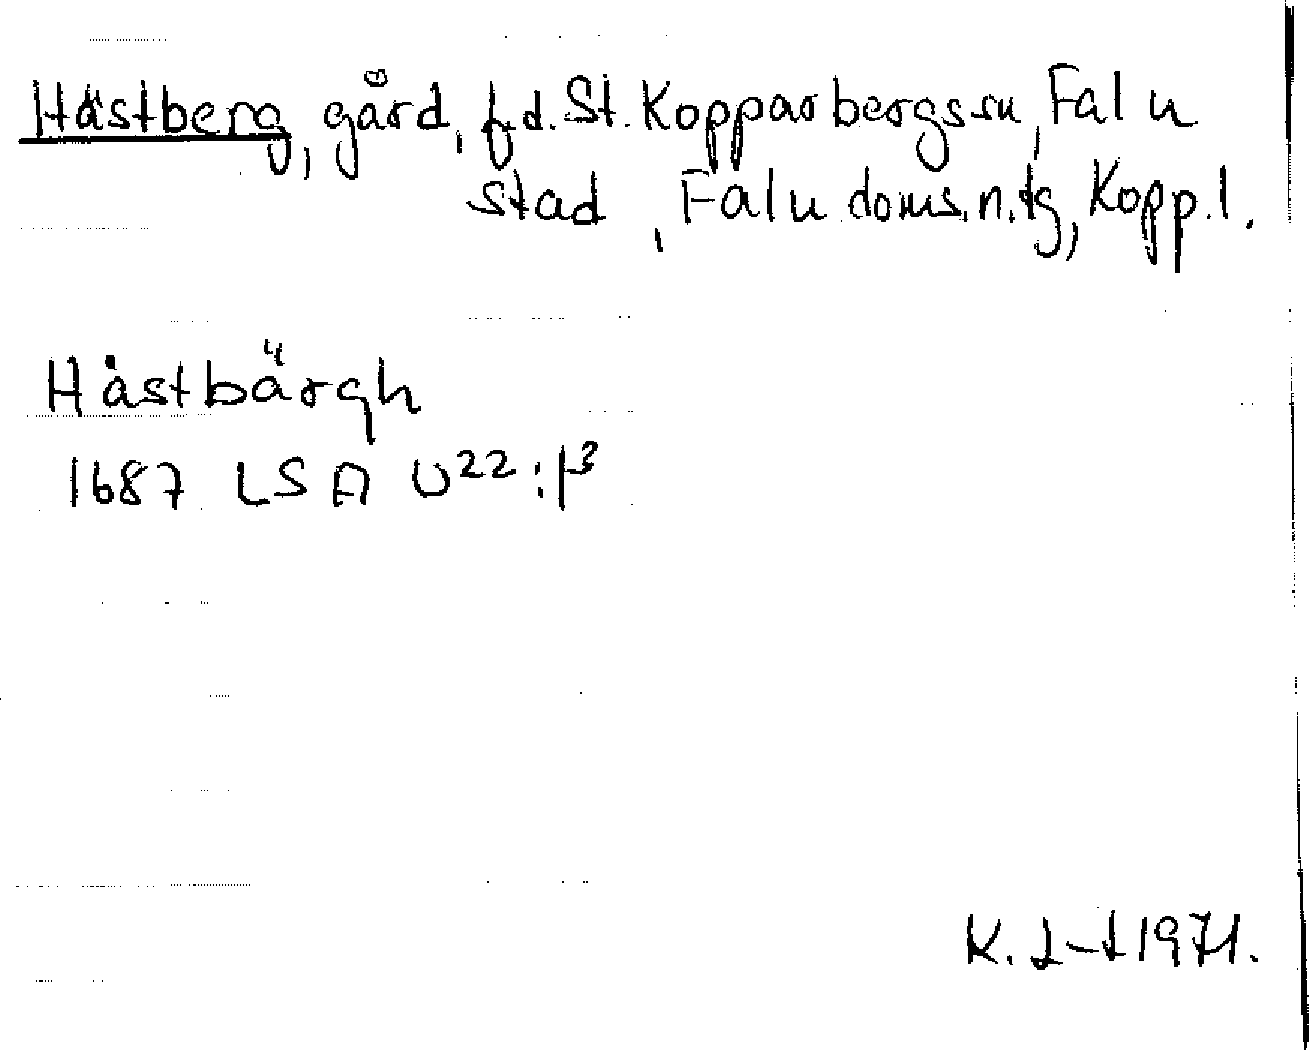 Hästberg, gård, f.d. St. Kopparbergs sn, Falu
stad, Falu doms.n.tg, Kopp.l.
Håstbärgh
1687 LSA U22:1³
1971.